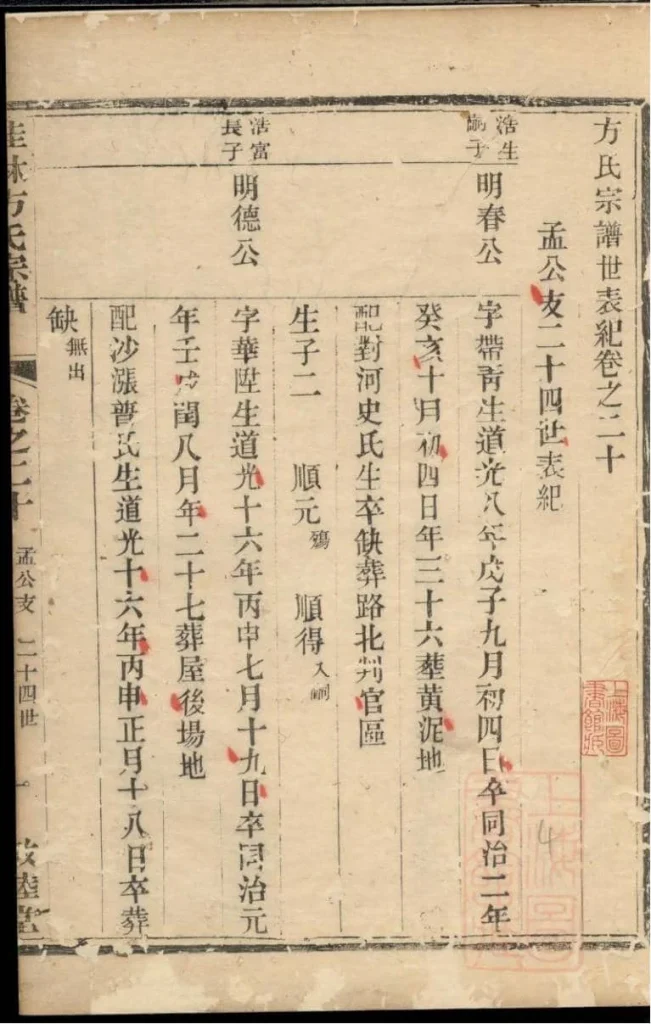 方氏宗譜世表紀卷之二十
孟公支二十四世表紀
浩生
嗣子
明春公
字帶青生道光八年戊子九月初四日卒同治二年
癸亥十月初四日年三十六葬黃泥地
配對河史氏生卒缺葬路北判官區
生子二 順元殤 順得入嗣
浩富
長子
明德公
字華陞生道光十六年丙申七月十九日卒同治元
年壬戌閏八月年二十七葬屋後場地
配沙漲普氏生道光十六年丙申正月十八日卒葬
缺無出
桂林方氏宗譜 卷之二十 孟公支 二十四世 一 敦睦堂
上海圖
書館藏
4